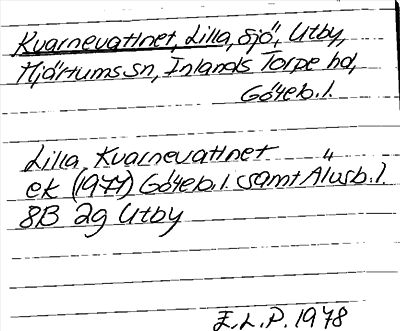 Kvarnevattnet, Lilla, sjö, Utby,
Hjärtums sn, Inlands Torpe hd,
Göteb.l.
Lilla, Kvarnevattnet
ek (1977) Göteb.l. samt Älvsb.l.
8B 2g Utby
E.L.P. 1978